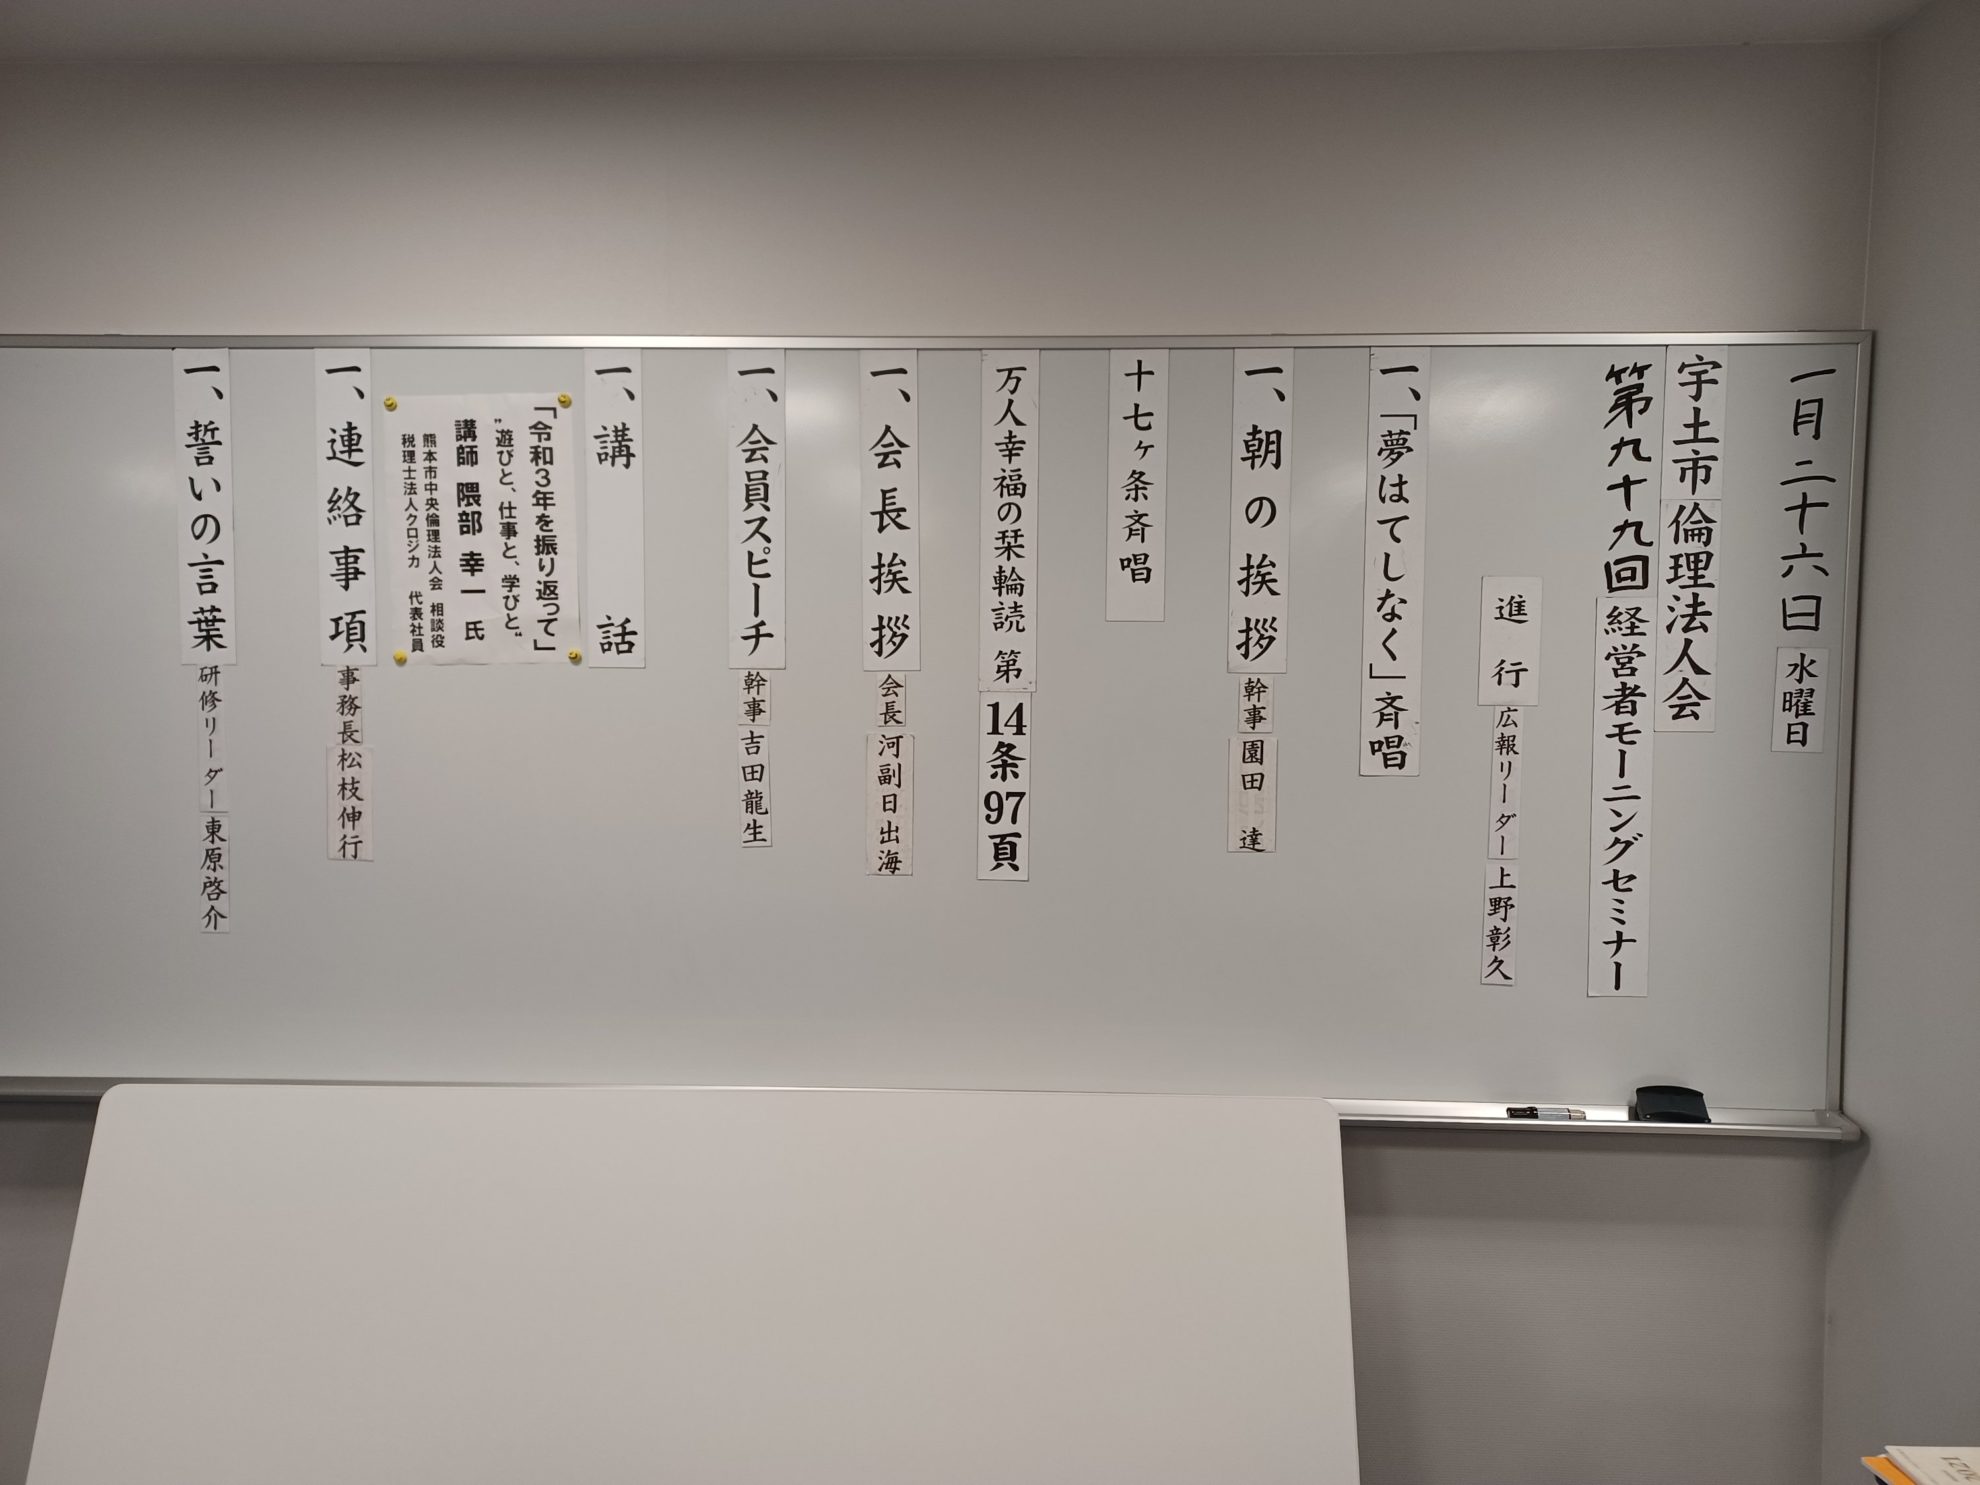 一月二十六日 水曜日
宇土市倫理法人会
第九十九回経営者モーニングセミナー
進行 広報リーダー 上野彰久
一、「夢はてしなく」斉唱
一、朝の挨拶 幹事 園田 達
十七ヶ条斉唱
万人幸福の栞輪読 第14条97頁
一、会長挨拶 会長 河副日出海
一、会員スピーチ 幹事 吉田龍生
一、講話
「令和3年を振り返って」
"遊びと、仕事と、学びと"
講師 隈部 幸一 氏
熊本市中央倫理法人会 相談役
税理士法人クロジカ 代表社員
一、連絡事項 事務長 松枝伸行
一、誓いの言葉 研修リーダー 東原啓介